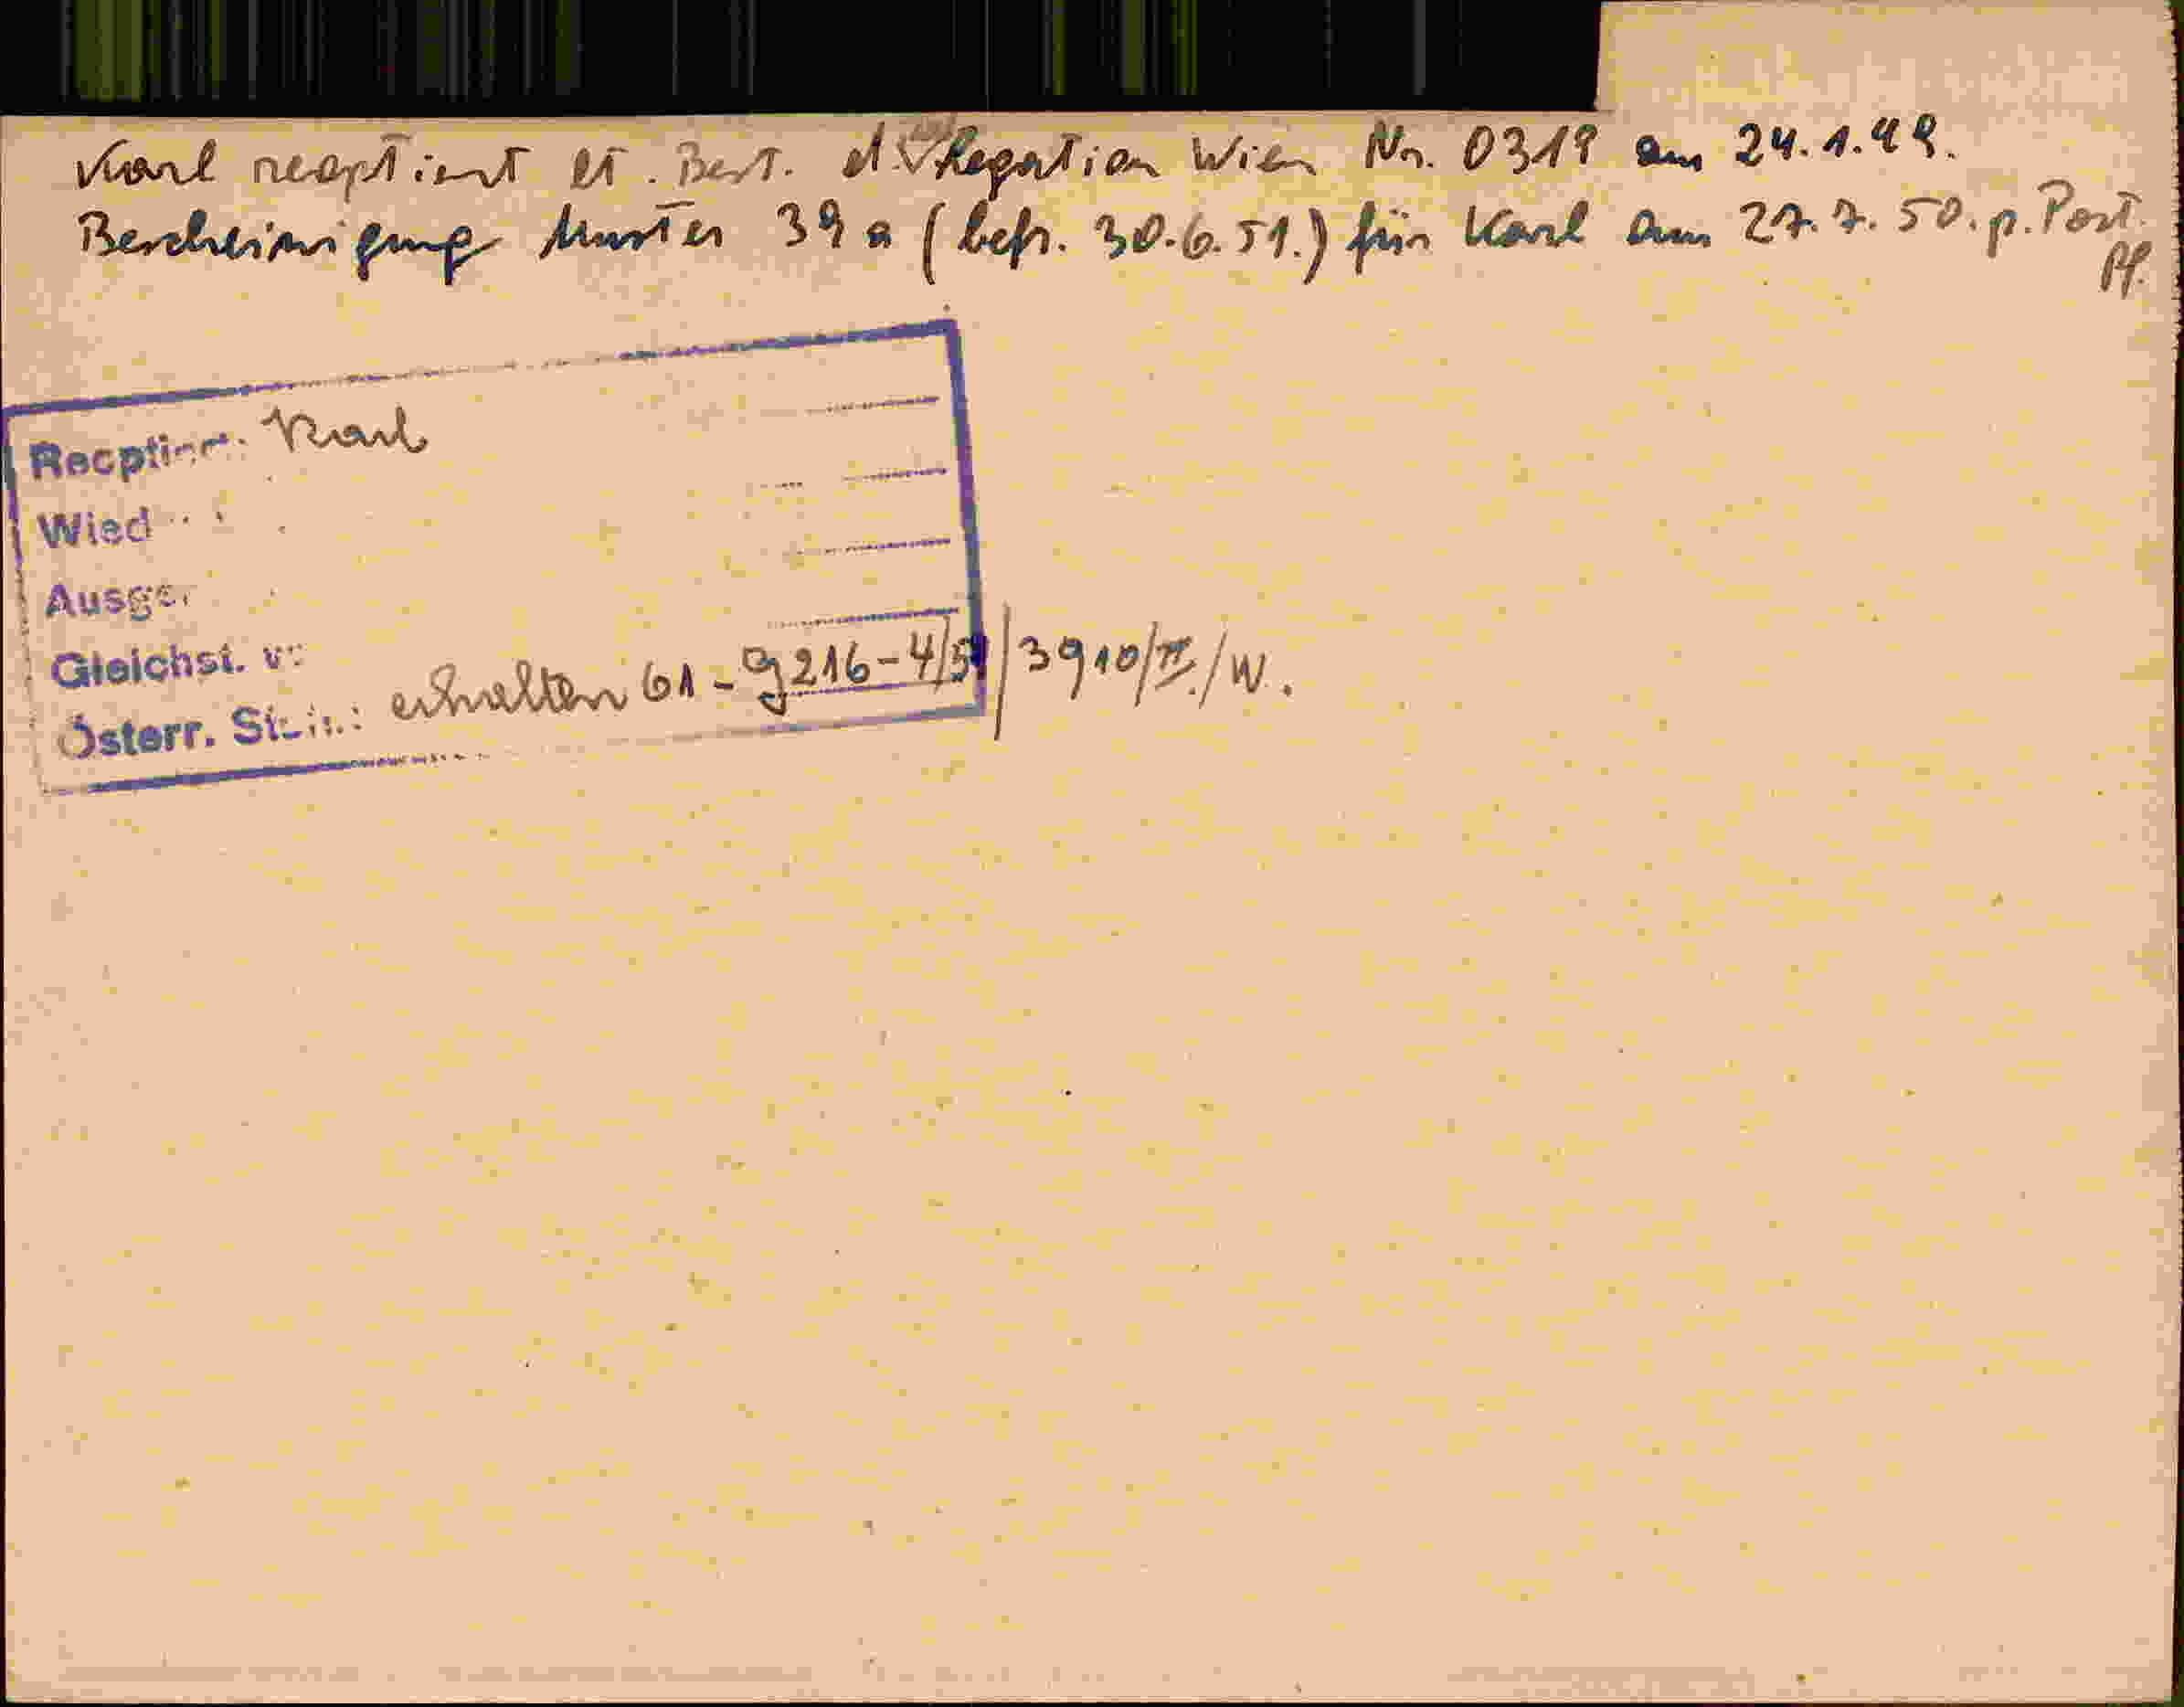 Karl reoptiert lt. Best. d. Legation Wien Nr. 0319 am 24.1.49.
Bescheinigung Muster 39 a (befr. 30.6.51.) für Karl am 27.7.50. p. Post.
Pf.
Reoptiert: Karl
Wied
Ausge
Gleichst. v
Österr. St.: erhalten 61-g216-4/51/3910/II./W.